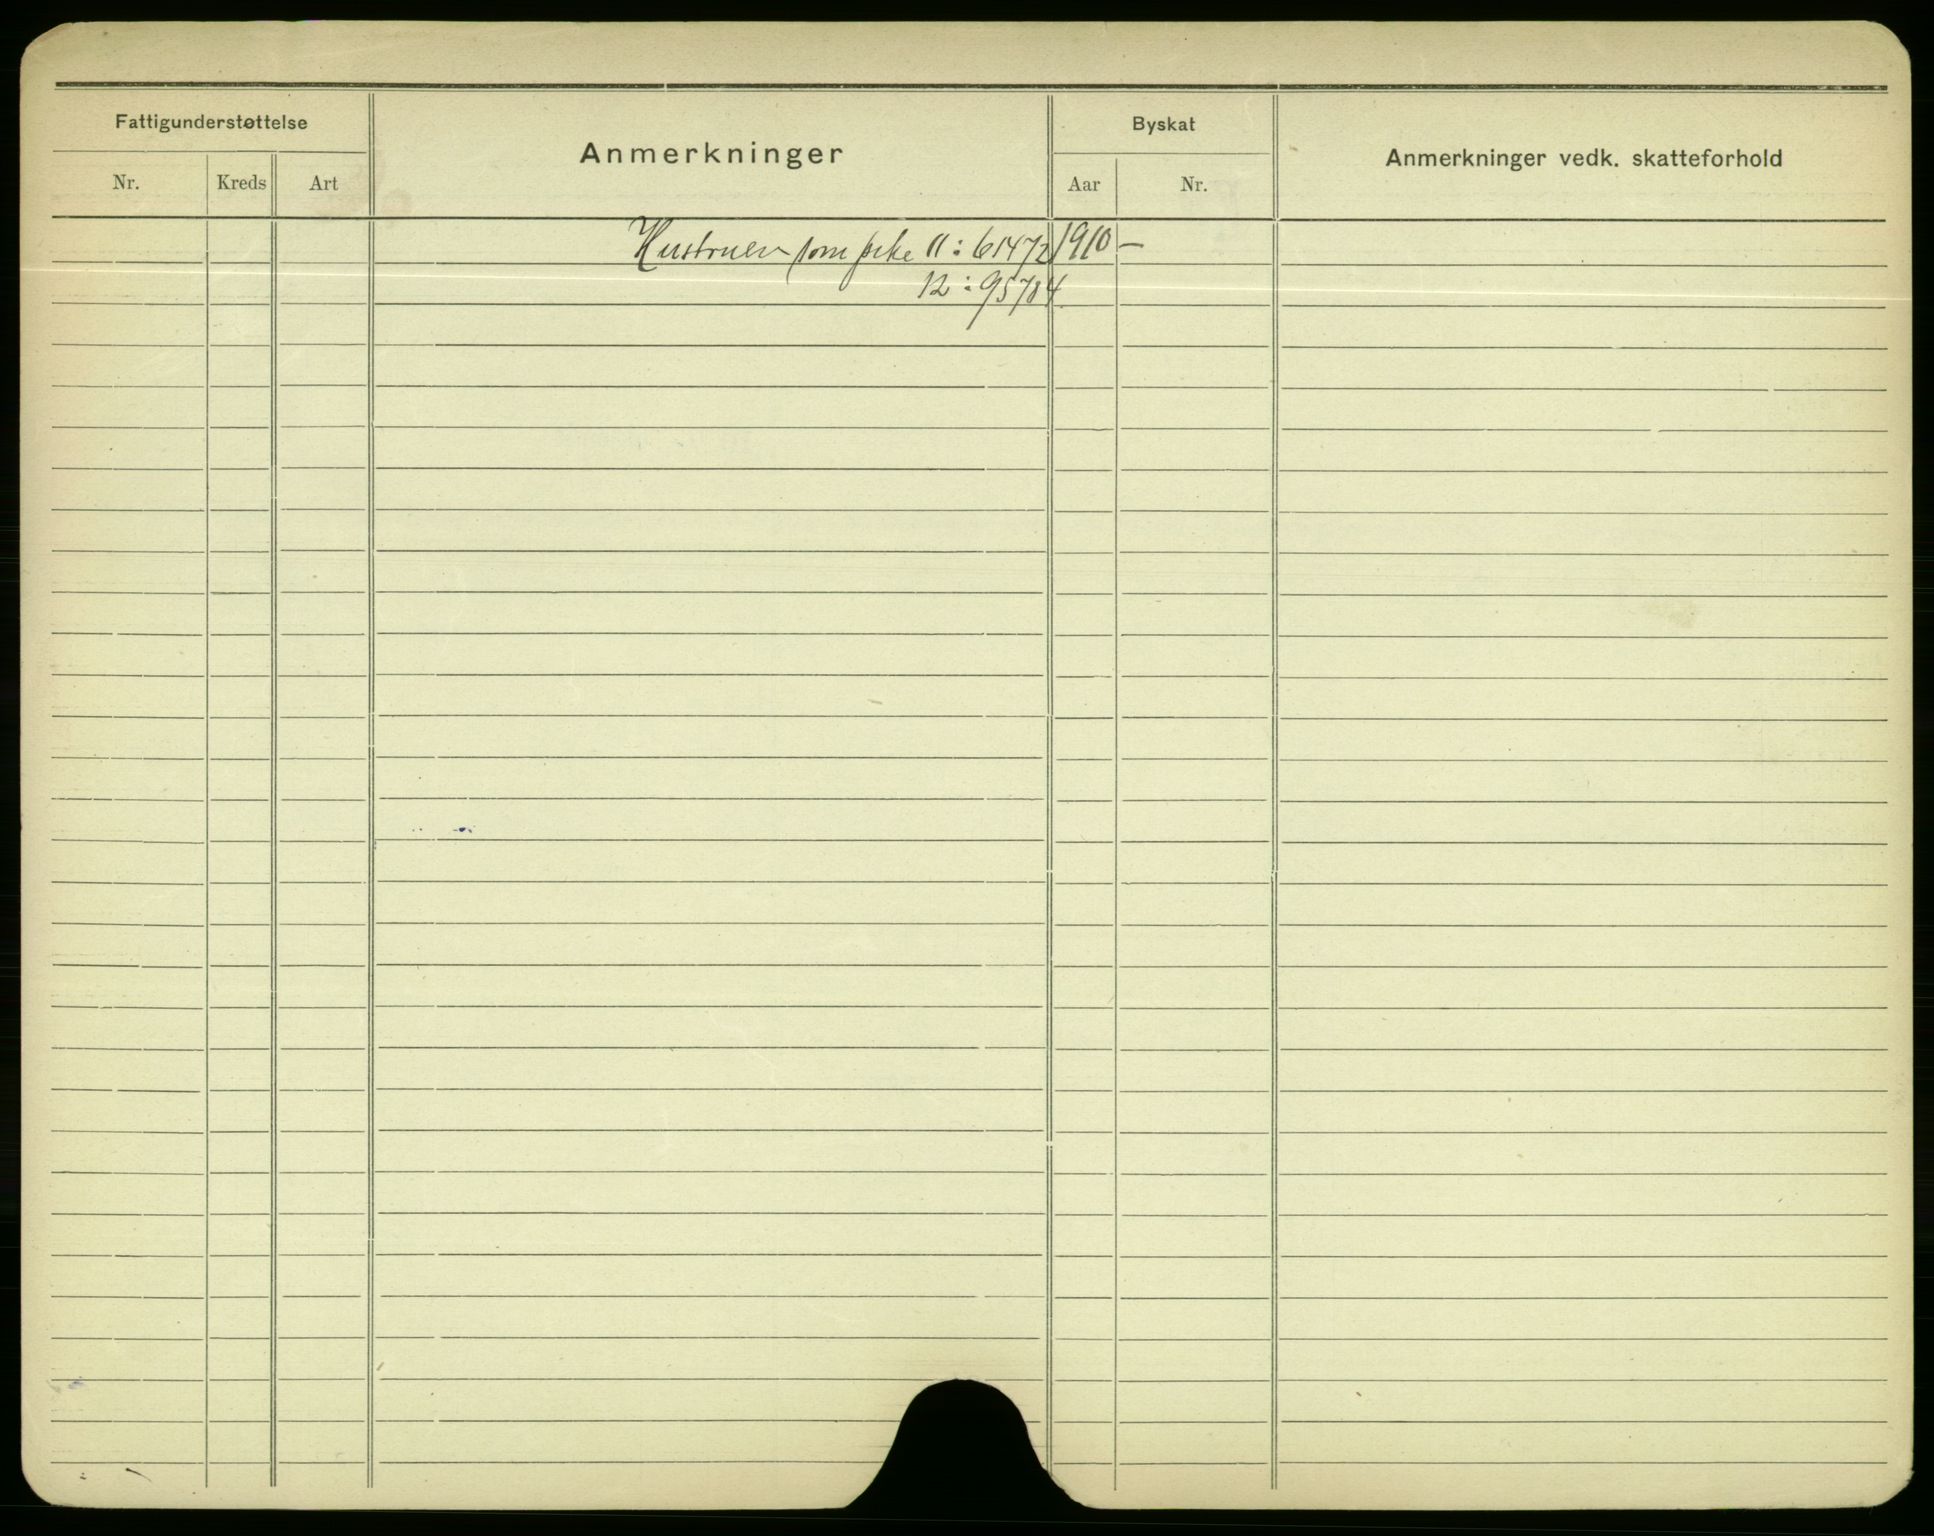 Fattigunderstøttelse
Anmerkninger
Byskat
Anmerkninger vedk. skatteforhold
Nr. Kreds Art
Aar Nr.
Hustruen som pike 11: 61472 1910 —
12: 95784